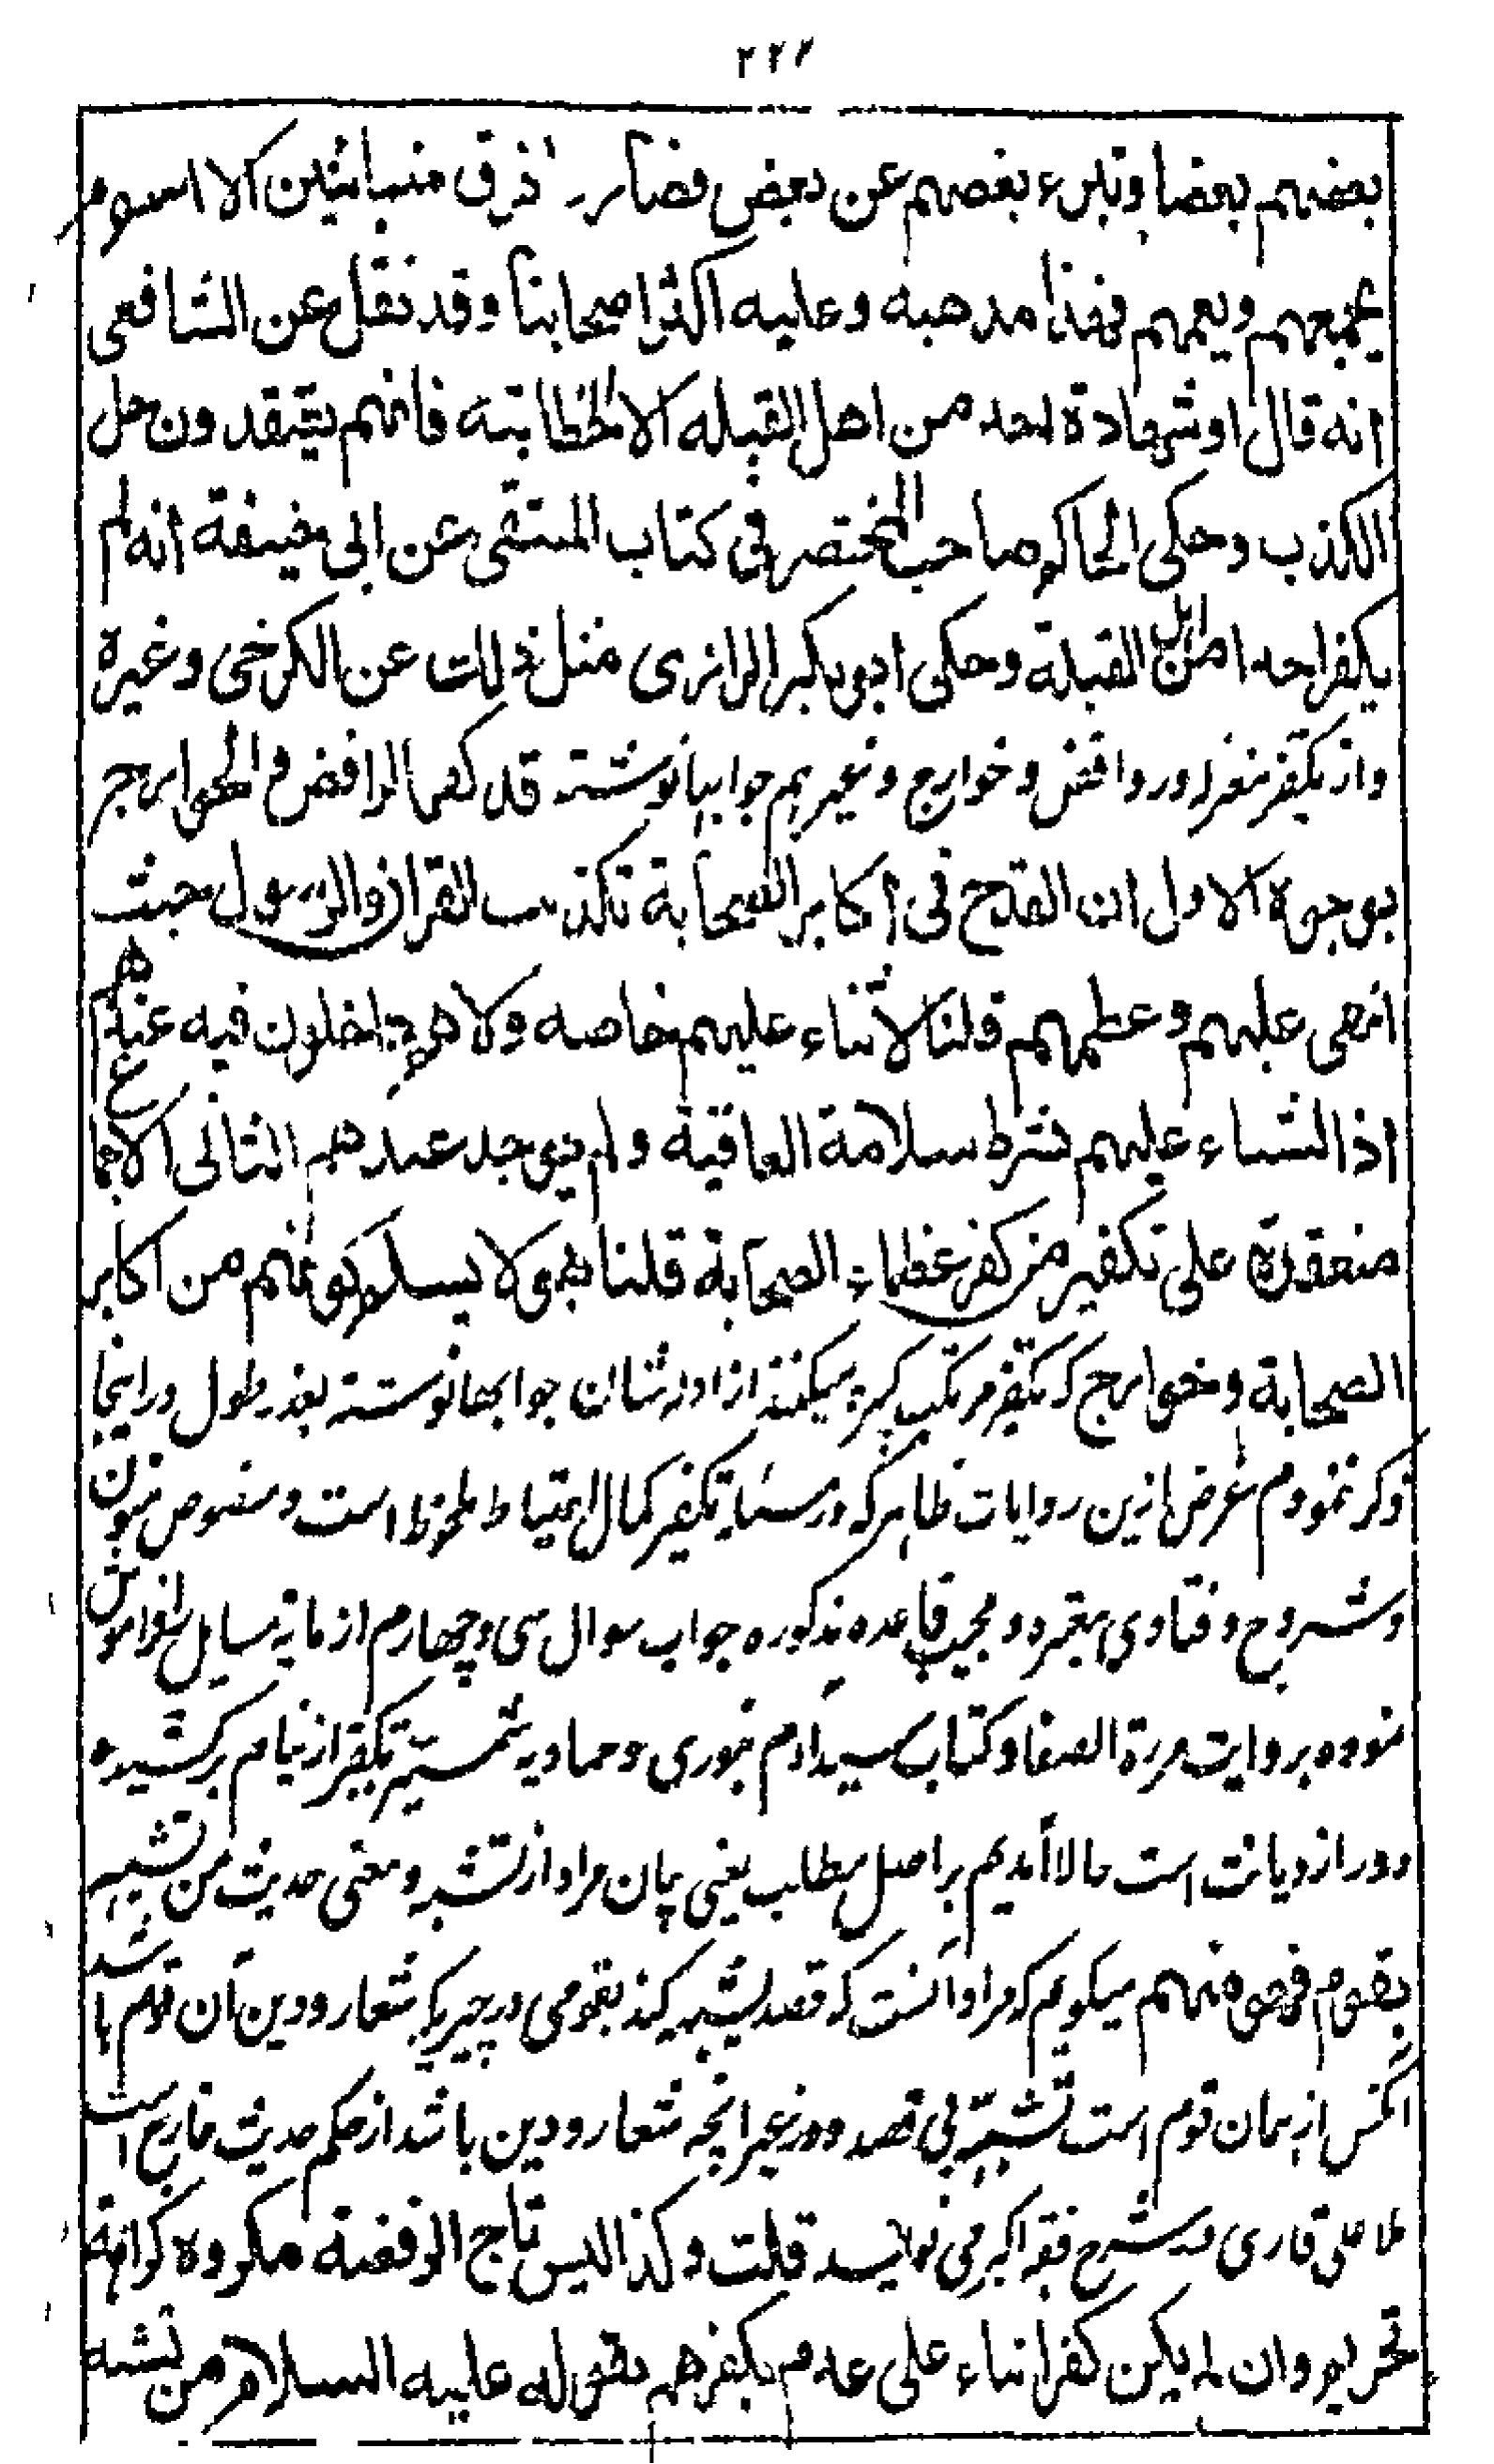 ۲۲۲
بعضهم بعضا وتبرء بعضهم عن بعض فصار فرق متباينين الا ان الاسلام
يجمعهم ويعمهم فهذا مذهبه وعليه اكثر اصحابنا وقد نقل عن الشافعى
انه قال اوشهادة احد من اهل القبله الا الخطابته فانهم يعتقدون حل
الكذب وحكى الحاكم صاحب المختصر فى كتاب المنتقى عن ابى حنيفة انه لم
يكفر احدا من اهل القبلة وحكى ابو بكر الرازى مثل ذلك عن الكرخى وغيره
واز تكفير روافض و خوارج و غيرهم جوابها نوشته قد كفر الرافض و الخوارج
بوجوه الاول ان القدح فى اكابر الصحابة تكذيب القران والرسول حيث
اثنى عليهم وعظمهم قلنا لا ثناء عليهم خاصه ولا هم داخلون فيه عندهم
اذ الثناء عليهم بشرط سلامة العاقبة ولم يوجد عندهم الثانى الاجماع
منعقدة على تكفير من كفر عظماء الصحابة قلنا هو لا يسلم كونهم من اكابر
الصحابة و خوارج كه تكفير مرتكب كبيره ميكنند از ادله شان جوابها نوشته بعذر طول در اينجا
ذكر ننمودم غرض ازين روايات ظاهر كه در مسئله تكفير كمال احتياط ملحوظ است و منصوص متون
و شروح و فتاوى معتبره و مجيب قاعده مذكوره جواب سوال سى و چهارم از مايه مسايل فراموش
نموده بروايت مرءة الصفا و كتاب سيد آدم بنورى و حماديه شمشير تكفير از نيام بركشيده
دور از ديانت است حالا آمديم بر اصل مطلب يعنى بيان مراد از تشبه و معنى حديث من تشبه
بقوم فهو منهم ميگويم كه مراد آنست كه قصد تشبه كند بقومى در چيزيكه شعار و دين آن قوم باشد
آنكس از همان قوم است تشبه بى قصد و در غير آنچه شعار و دين باشد از حكم حديث خارج است
ملا على قارى در شرح فقه اكبر مى نويسد قلت وكذا لبس تاج الرفضة مكروه كراهة
تحريم وان لم يكن كفرا بناء على عدم تكفيرهم بقوله عليه السلام من تشبه